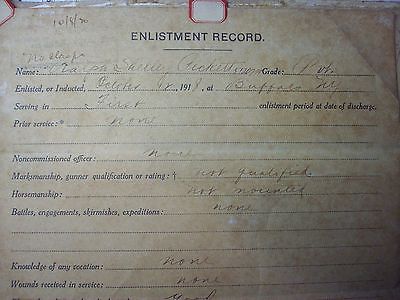 10/8/20
ENLISTMENT RECORD.
No Claps
Name: Shelley Grade: Pvt.
Enlisted, or Inducted, 12, 1918, at Buffalo NY
Serving in First enlistment period at date of discharge.
Prior service:* None
Noncommissioned officer: None
Marksmanship, gunner qualification or rating:† not qualified
Horsemanship: not mounted
Battles, engagements, skirmishes, expeditions: none
Knowledge of any vocation: none
Wounds received in service: none
Good